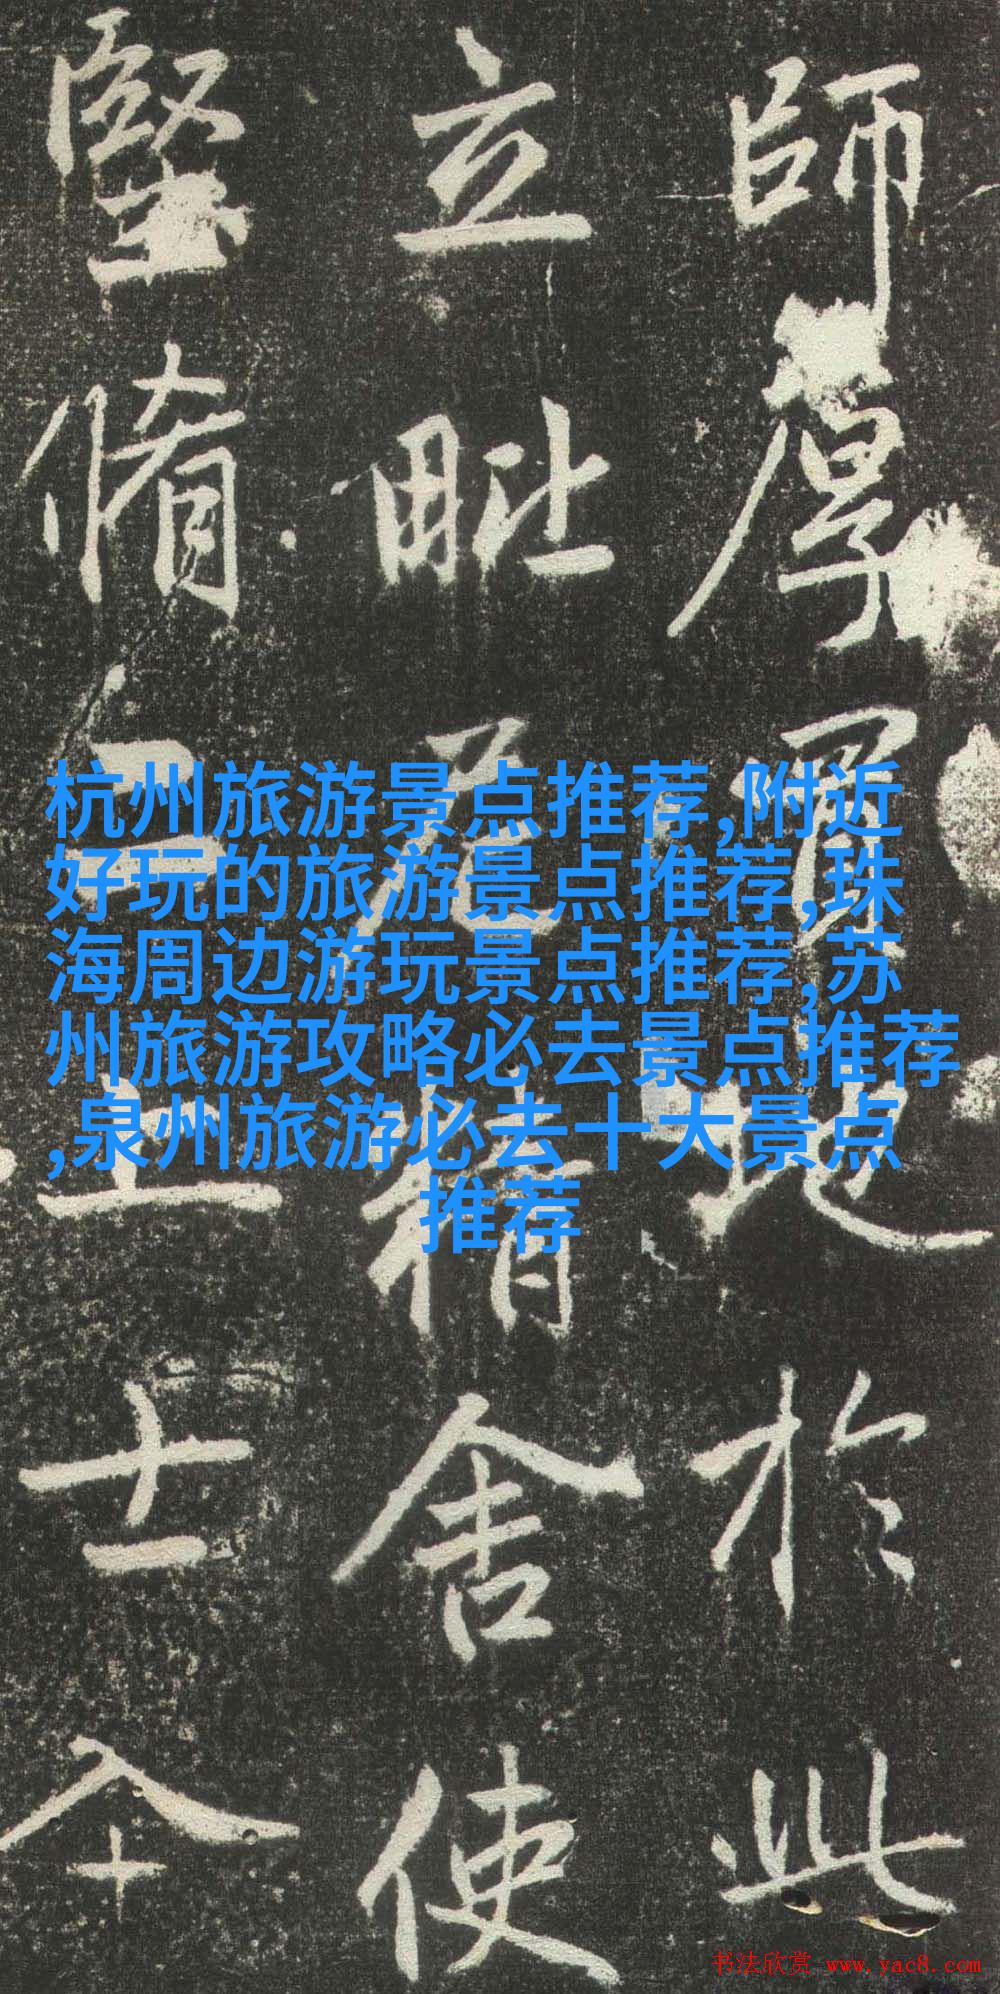 師厚買地於此
立毗尼精舍使
堅脩上
杭州旅游景点推荐,附近
好玩的旅游景点推荐,珠
海周边游玩景点推荐,苏
州旅游攻略必去景点推荐
,泉州旅游必去十大景点
推荐
书法欣赏 www.yac8.com